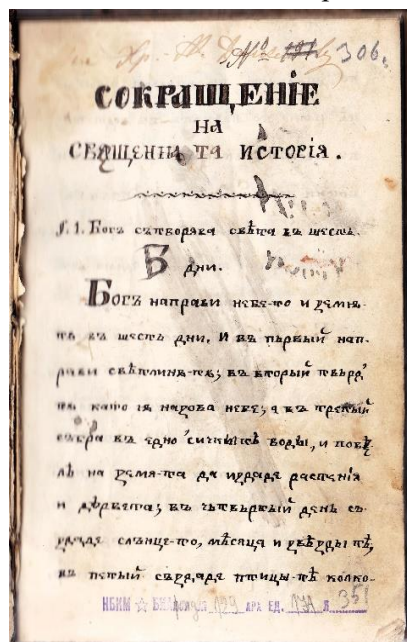 306.
СОКРАЩЕНІЕ
НА
ИСТОРІЯ.
§. 1. Богъ сътворява свѣта въ шесть
дни.
Богъ направи небе-то и земıѫ-
тѫ въ шесть дни. И въ първый нап-
рави свѣтлинѫ-тѫ; въ вторый твърд'
като їѫ назова небе; а въ третый
събра въ едно сичкы-тѣ воды, и
лѣ на земıѫ-тѫ да изради растенія
и дървета; въ четвъртый день съ-
слънце-то, мѣсяца и звѣзды-тѣ,
въ петый създаде птицы-тѣ колко-
НБКМ ☆ 129 АРХ ЕД. 171 Л 351